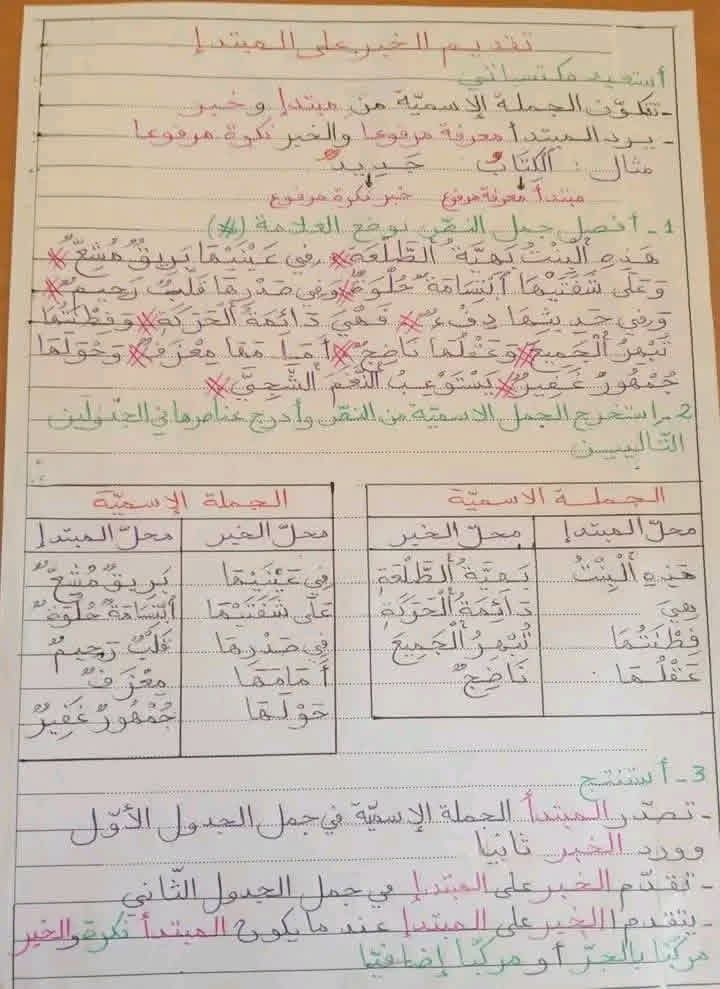 تقديم الخبر على المبتدإ
أستعيد مكتسباتي
- تتكوّن الجملة الإسميّة من مبتدإ وخبر
- يرد المبتدأ معرفة مرفوعا والخبر نكرة مرفوعا
مثال : الكِتَابُ جَدِيدٌ
مبتدأ معرفة مرفوع خبر نكرة مرفوع
1 - أفصل جمل النصّ بوضع العلامة (*)
هَذِهِ الْبِنْتُ بَهِيَّةُ الطَّلْعَةِ * فِي عَيْنَيْهَا بَرِيقٌ مُشِعٌّ *
وَعَلَى شَفَتَيْهَا ابْتِسَامَةٌ حُلْوَةٌ * وَفِي صَدْرِهَا قَلْبٌ رَحِيمٌ *
وَفِي حَدِيثِهَا دِفْءٌ * فَهْيَ دَائِمَةُ الْحَرَكَةِ * وَفِطْنَتُهَا
تُبْهِرُ الْجَمِيعَ * وَعَقْلُهَا نَاضِجٌ * أَمَامَهَا مِعْزَفٌ * وَحَوْلَهَا
جُمْهُورٌ غَفِيرٌ * يَسْتَوْعِبُ النَّغَمَ الشَّجِيَّ *
2 - استخرج الجمل الاسميّة من النصّ وأدرج عناصرها في الجدولين
التّاليين
الجملة الاسميّة
محلّ المبتدإ محلّ الخبر
هَذِهِ الْبِنْتُ بَهِيَّةُ الطَّلْعَةِ
هِيَ دَائِمَةُ الْحَرَكَةِ
فِطْنَتُهَا تُبْهِرُ الْجَمِيعَ
عَقْلُهَا نَاضِجٌ
الجملة الإسميّة
محلّ الخبر محلّ المبتدإ
فِي عَيْنَيْهَا بَرِيقٌ مُشِعٌّ
عَلَى شَفَتَيْهَا ابْتِسَامَةٌ حُلْوَةٌ
فِي صَدْرِهَا قَلْبٌ رَحِيمٌ
أَمَامَهَا مِعْزَفٌ
حَوْلَهَا جُمْهُورٌ غَفِيرٌ
3 - أستنتج
- تصدّر المبتدأ الجملة الإسميّة في جمل الجدول الأوّل
وورد الخبر ثانيا
- تقدّم الخبر على المبتدإ في جمل الجدول الثّاني
- يتقدم الخبر على المبتدإ عند ما يكون المبتدأ نكرة والخبر
مركّبا بالجرّ أو مركّبا إضافيّا